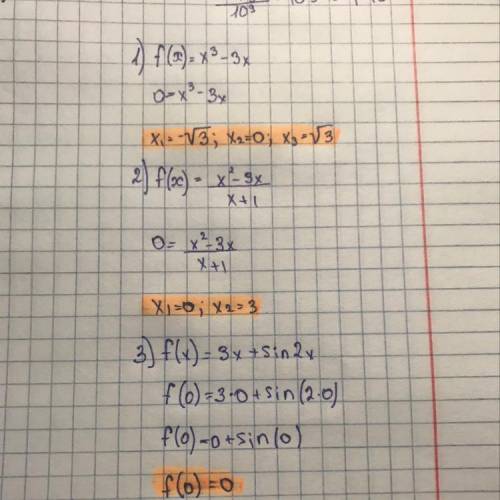 10³
1) f(x)=x³-3x
0=x³-3x
x₁=-√3; x₂=0; x₃=√3
2) f(x)= x²-3x / x+1
0= x²-3x / x+1
x₁=0; x₂=3
3) f(x)=3x+sin2x
f(0)=3·0+sin(2·0)
f(0)=0+sin(0)
f(0)=0